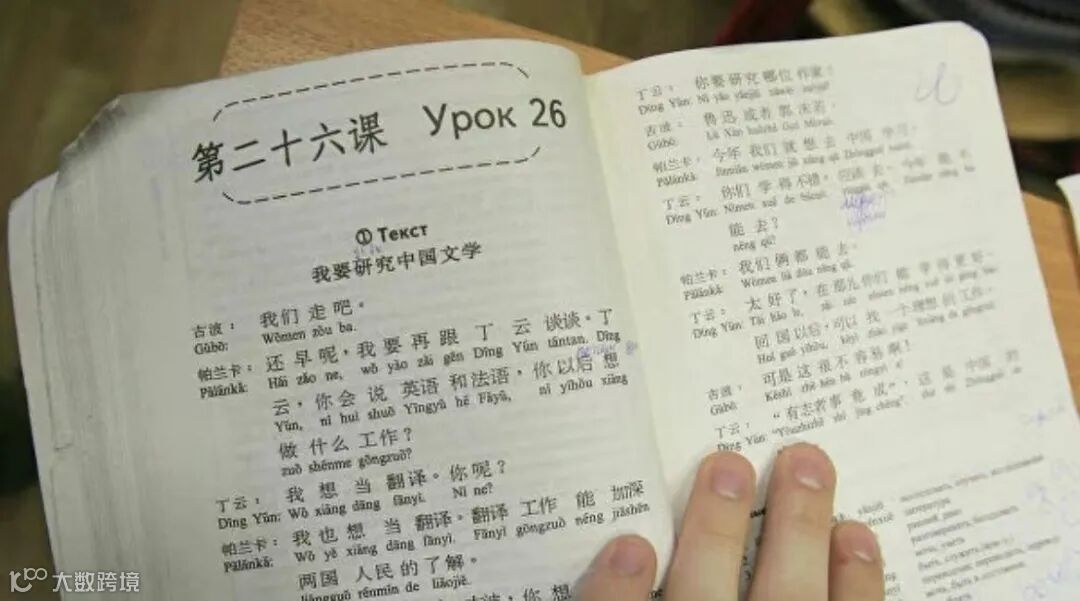 第二十六课 Урок 26
① Текст
我要研究中国文学
古波： 我们走吧。
Gǔbō: Wǒmen zǒu ba.
帕兰卡： 还早呢，我要再跟丁云谈谈。丁
Pàlánkǎ: Hái zǎo ne, wǒ yào zài gēn Dīng Yún tántan. Dīng
云，你会说英语和法语，你以后想
Yún, nǐ huì shuō Yīngyǔ hé Fǎyǔ, nǐ yǐhòu xiǎng
做什么工作？
zuò shénme gōngzuò?
丁云： 我想当翻译。你呢？
Dīng Yún: Wǒ xiǎng dāng fānyì. Nǐ ne?
帕兰卡： 我也想当翻译。翻译工作能加深
Pàlánkǎ: Wǒ yě xiǎng dāng fānyì. Fānyì gōngzuò néng jiāshēn
两国人民的了解。
liǎngguó rénmín de liǎojiě.
你想
丁云： 你要研究哪位作家？
Dīng Yún: Nǐ yào yánjiū nǎwèi zuòjiā?
古波： 鲁迅或者郭沫若。
Gǔbō: Lǔ Xùn huòzhě Guō Mòruò.
帕兰卡： 今年我们就想去中国学习。
Pàlánkǎ: Jīnnián wǒmen jiù xiǎng qù Zhōngguó xuéxí.
丁云： 你们学得不错，应该去。今年能不
Dīng Yún: Nǐmen xué de búcuò, yīnggāi qù. Jīnnián néng bu
能去？
néng qù?
帕兰卡： 我们俩都能去。
Pàlánkǎ: Wǒmen liǎ dōu néng qù.
丁云： 太好了，在那儿你们能学得更好。
Dīng Yún: Tài hǎo le, zài nàr nǐmen néng xué de gèng hǎo.
回国以后，可以找一个理想的工作。
Huí guó yǐhòu, kěyǐ zhǎo yíge lǐxiǎng de gōngzuò.
古波： 可是这很不容易啊！
Gǔbō: Kěshì zhè hěn bù róngyì a!
丁云： “有志者事竟成”，这是中国的
Dīng Yún: "Yǒuzhìzhě shì jìng chéng", zhè shì Zhōngguó de
大数跨境